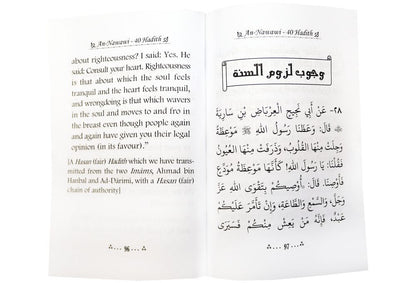 An-Nawawi - 40 Hadith
about righteousness? I said: Yes. He
said: Consult your heart. Righteousness
is that about which the soul feels
tranquil and the heart feels tranquil,
and wrongdoing is that which wavers
in the soul and moves to and fro in
the breast even though people again
and again have given you their legal
opinion (in its favour).”
[A Hasan (fair) Hadith which we have
transmitted from the two Imams, Ahmad bin
Hanbal and Ad-Darimi, with a Hasan (fair)
chain of authority]
96
An-Nawawi - 40 Hadith
وجوب لزوم السنة
٢٨- عَنْ أَبِي نَجِيحٍ الْعِرْبَاضِ بْنِ سَارِيَةَ
قَالَ: وَعَظَنَا رَسُولُ اللهِ ﷺ مَوْعِظَةً
وَجِلَتْ مِنْهَا الْقُلُوبُ، وَذَرَفَتْ مِنْهَا الْعُيُونُ
فَقُلْنَا: يَا رَسُولَ اللهِ! كَأَنَّهَا مَوْعِظَةُ مُوَدِّعٍ
فَأَوْصِنَا. قَالَ: أُوصِيكُمْ بِتَقْوَى اللهِ عَزَّ
وَجَلَّ، وَالسَّمْعِ وَالطَّاعَةِ، وَإِنْ تَأَمَّرَ عَلَيْكُمْ
عَبْدٌ، فَإِنَّهُ مَنْ يَعِشْ مِنْكُمْ فَسَيَرَى
97